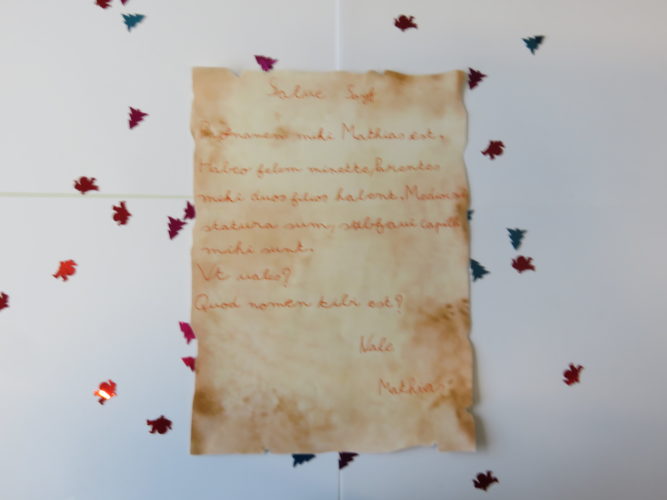 Salve
Praenomen mihi Mathias est.
Habeo felem minette, Parentes
mihi duos filios habent. Mediocris
statura sum, subflavi capilli
mihi sunt.
Vt uales?
Quod nomen tibi est?
Vale
Mathias